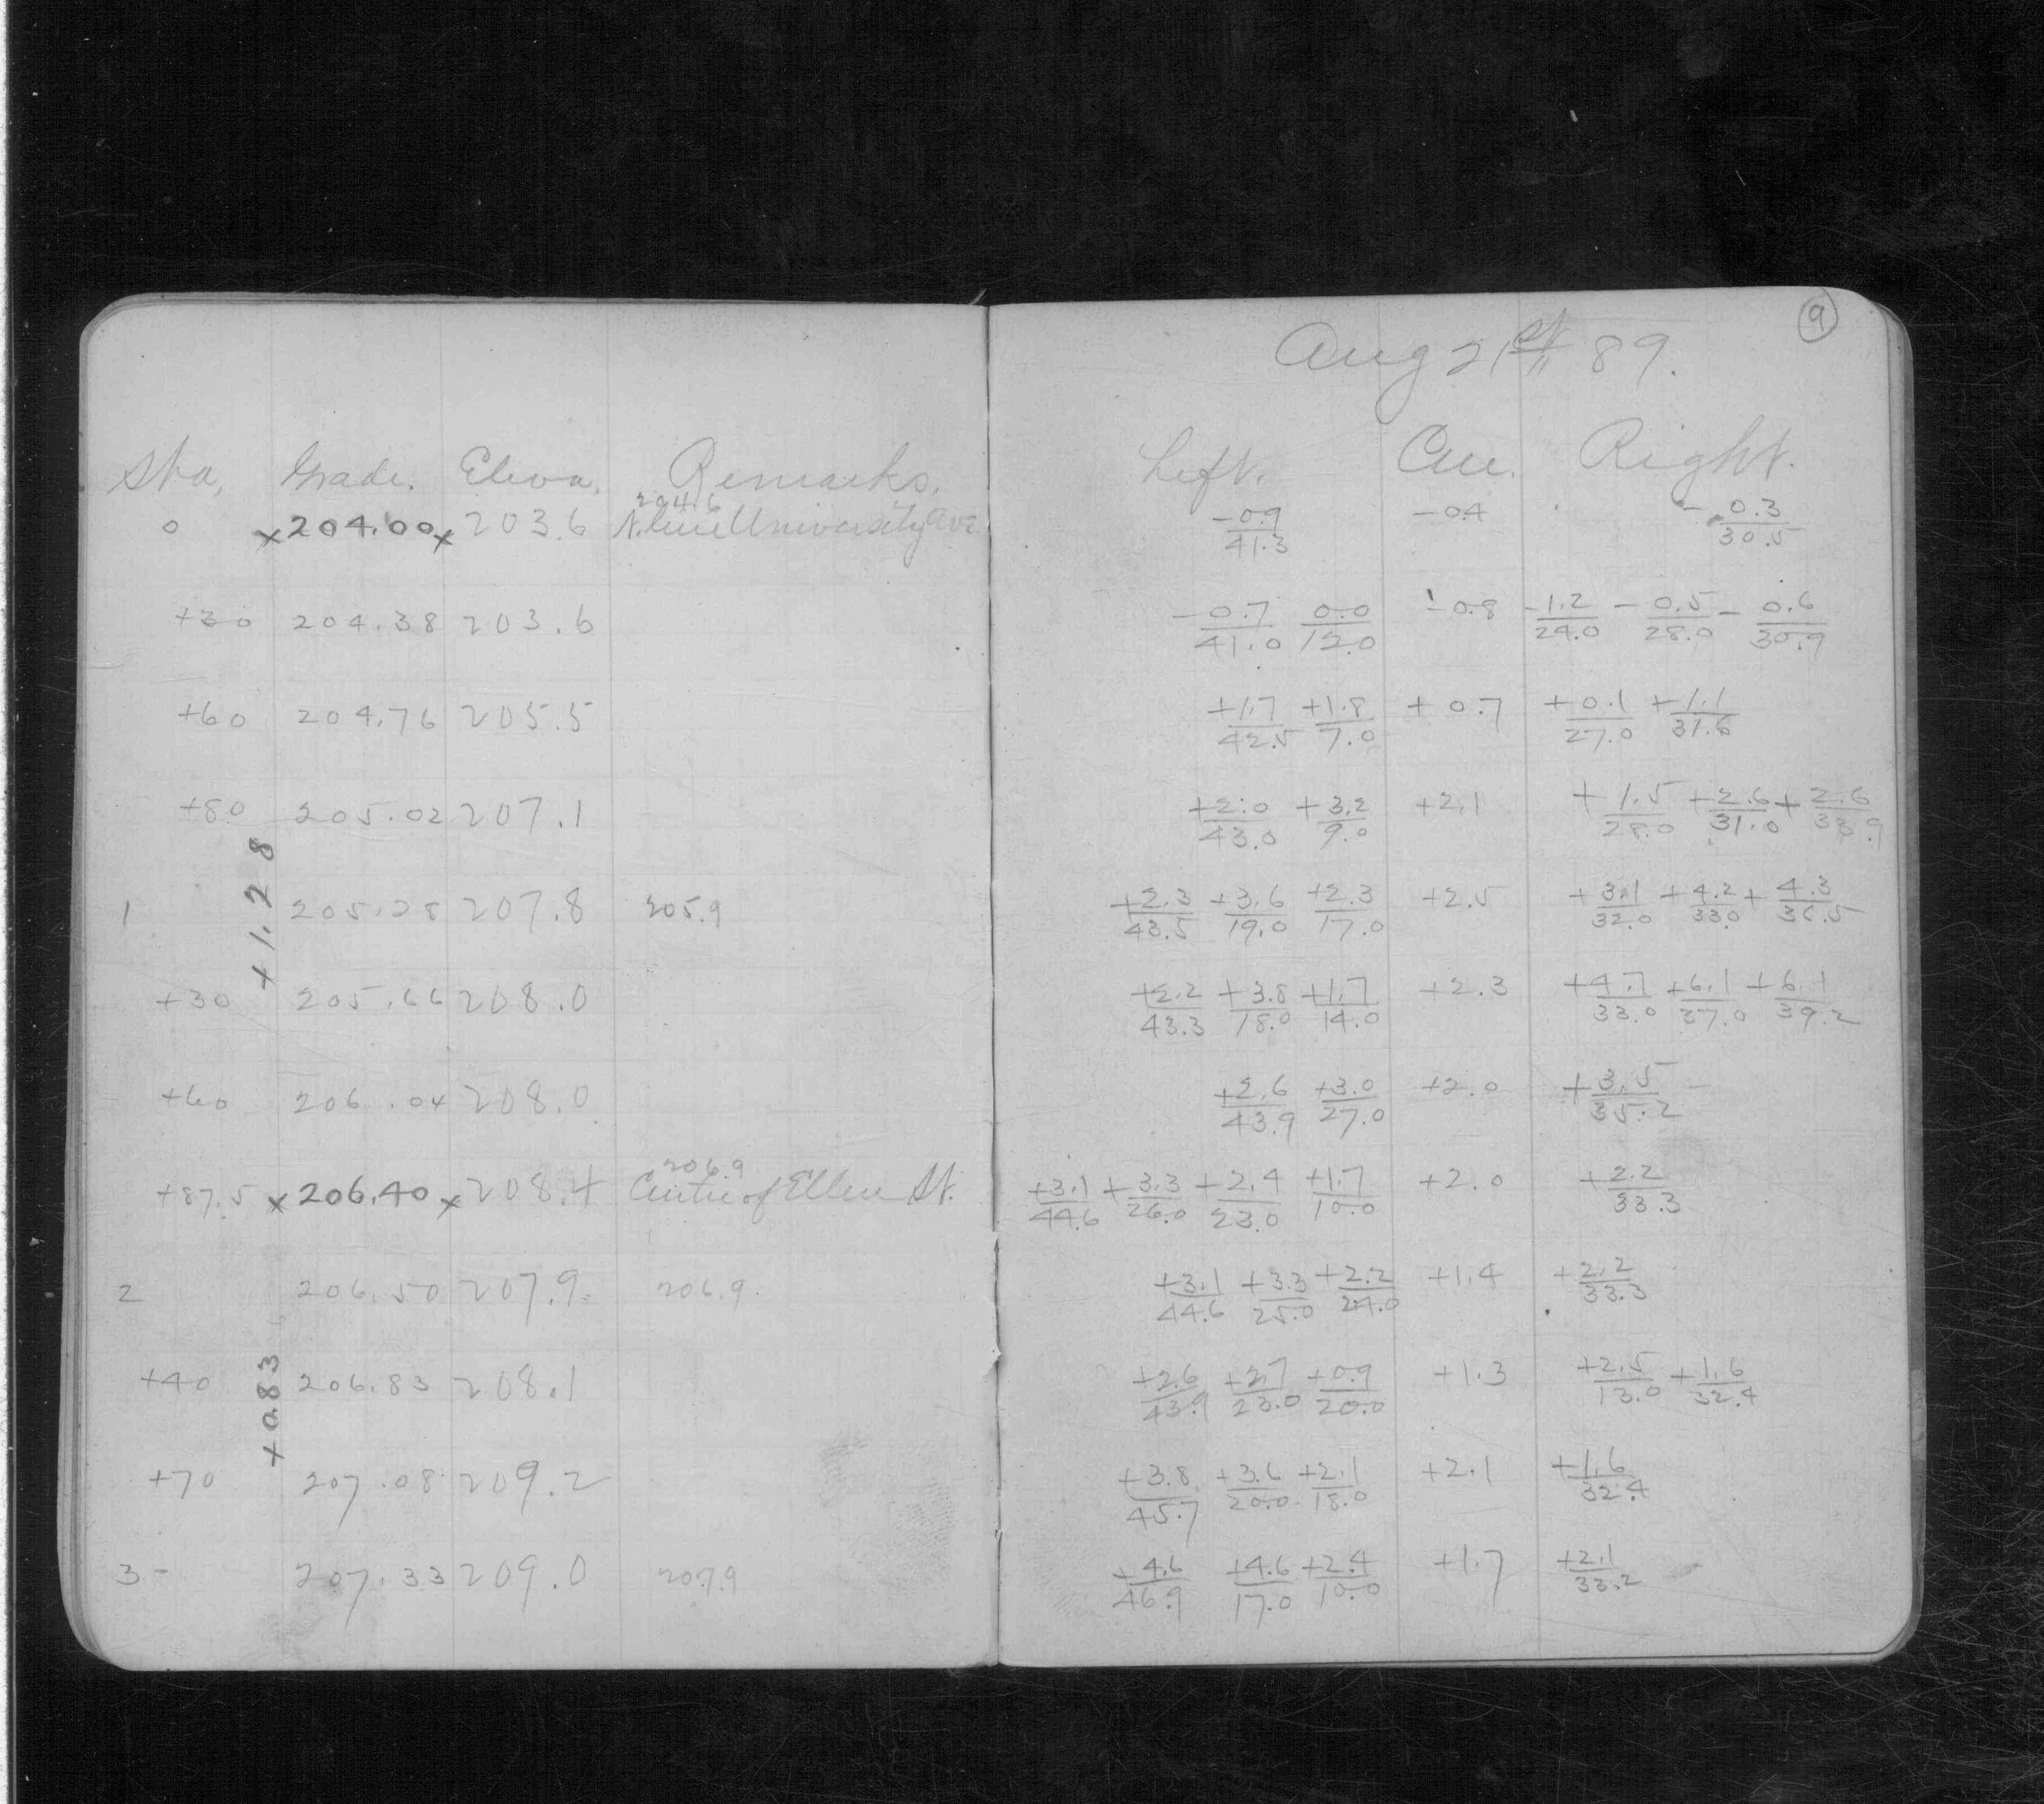 9
Aug 21st 89.
Sta. Grade. Eleva. Remarks. Left. Cen. Right.
204.6
0 x204.00x 203.6 N. line University Ave. -0.9/41.3 -0.4 -0.3/30.5
+30 204.38 203.6 -0.7/41.0 0.0/12.0 -0.8 -1.2/24.0 -0.5/28.0 -0.6/30.9
+60 204.76 205.5 +1.7/42.5 +1.8/7.0 +0.7 +0.1/27.0 +1.1/31.6
+80 205.02 207.1 +2.0/43.0 +3.2/9.0 +2.1 +1.5/28.0 +2.6/31.0 +2.6/33.9
+1.28
1 205.28 207.8 205.9 +2.3/43.5 +3.6/19.0 +2.3/17.0 +2.5 +3.1/32.0 +4.2/33.0 +4.3/36.5
+30 205.66 208.0 +2.2/43.3 +3.8/18.0 +1.7/14.0 +2.3 +4.7/33.0 +6.1/37.0 +6.1/39.2
+60 206.04 208.0 +2.6/43.9 +3.0/27.0 +2.0 +3.5/35.2
206.9
+87.5 x206.40x 208.4 Centre of Ellen St. +3.1/44.6 +3.3/26.0 +2.4/23.0 +1.7/10.0 +2.0 +2.2/33.3
2 206.50 207.9 206.9 +3.1/44.6 +3.3/25.0 +2.2/24.0 +1.4 +2.2/33.3
+0.83
+40 206.83 208.1 +2.6/43.9 +2.7/23.0 +0.9/20.0 +1.3 +2.5/13.0 +1.6/32.4
+70 207.08 209.2 +3.8/45.7 +3.6/20.0 +2.1/18.0 +2.1 +1.6/32.4
3 - 207.33 209.0 207.9 +4.6/46.9 +4.6/17.0 +2.4/10.0 +1.7 +2.1/33.2